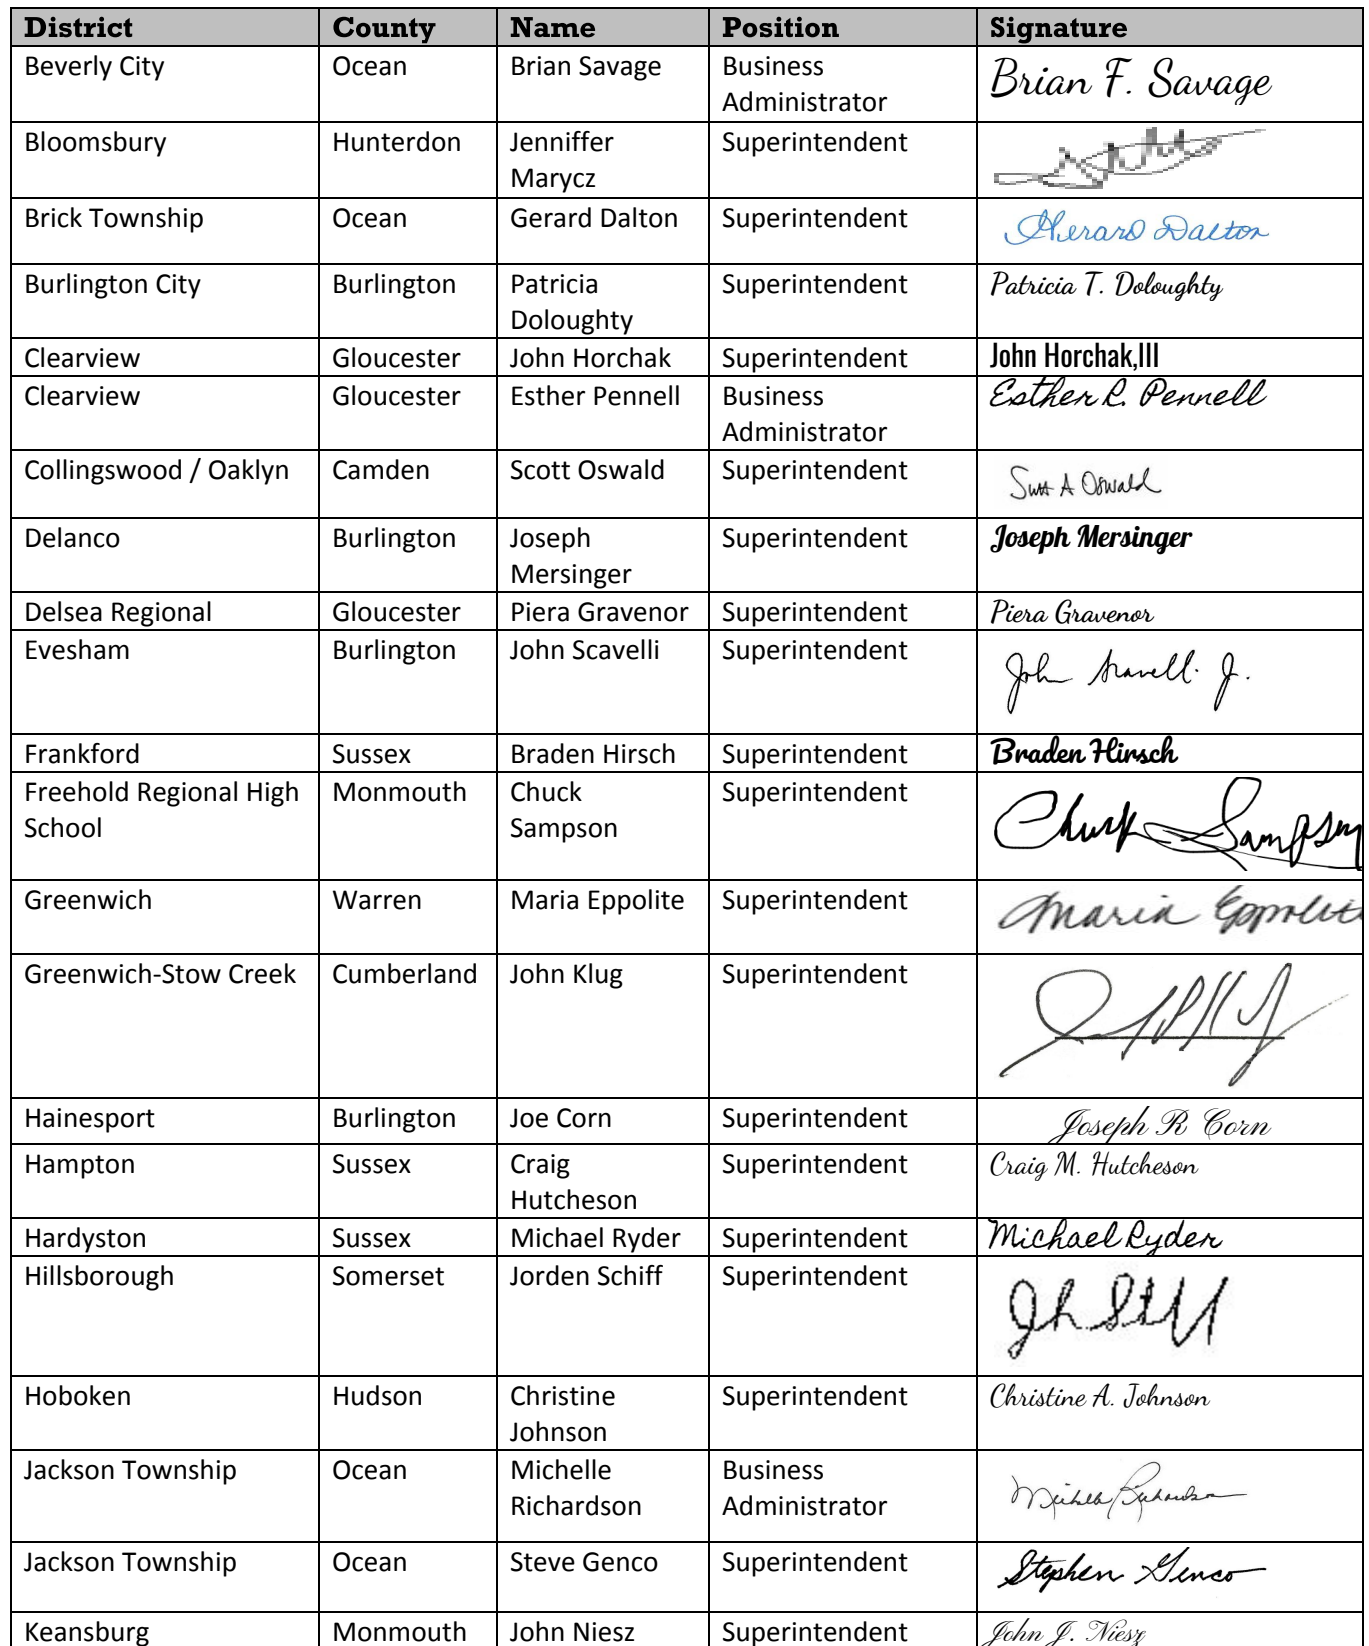 District County Name Position Signature
Beverly City Ocean Brian Savage Business Brian F. Savage
Administrator
Bloomsbury Hunterdon Jenniffer Superintendent
Marycz
Brick Township Ocean Gerard Dalton Superintendent Gerard Dalton
Burlington City Burlington Patricia Superintendent Patricia T. Doloughty
Doloughty
Clearview Gloucester John Horchak Superintendent John Horchak,III
Clearview Gloucester Esther Pennell Business Esther R. Pennell
Administrator
Collingswood / Oaklyn Camden Scott Oswald Superintendent Scott A Oswald
Delanco Burlington Joseph Superintendent Joseph Mersinger
Mersinger
Delsea Regional Gloucester Piera Gravenor Superintendent Piera Gravenor
Evesham Burlington John Scavelli Superintendent John Scavelli Jr.
Frankford Sussex Braden Hirsch Superintendent Braden Hirsch
Freehold Regional High Monmouth Chuck Superintendent Chuck Sampson
School Sampson
Greenwich Warren Maria Eppolite Superintendent Maria Eppolite
Greenwich-Stow Creek Cumberland John Klug Superintendent
Hainesport Burlington Joe Corn Superintendent Joseph R Corn
Hampton Sussex Craig Superintendent Craig M. Hutcheson
Hutcheson
Hardyston Sussex Michael Ryder Superintendent Michael Ryder
Hillsborough Somerset Jorden Schiff Superintendent
Hoboken Hudson Christine Superintendent Christine A. Johnson
Johnson
Jackson Township Ocean Michelle Business Michelle Richardson
Richardson Administrator
Jackson Township Ocean Steve Genco Superintendent Stephen Genco
Keansburg Monmouth John Niesz Superintendent John J. Niesz